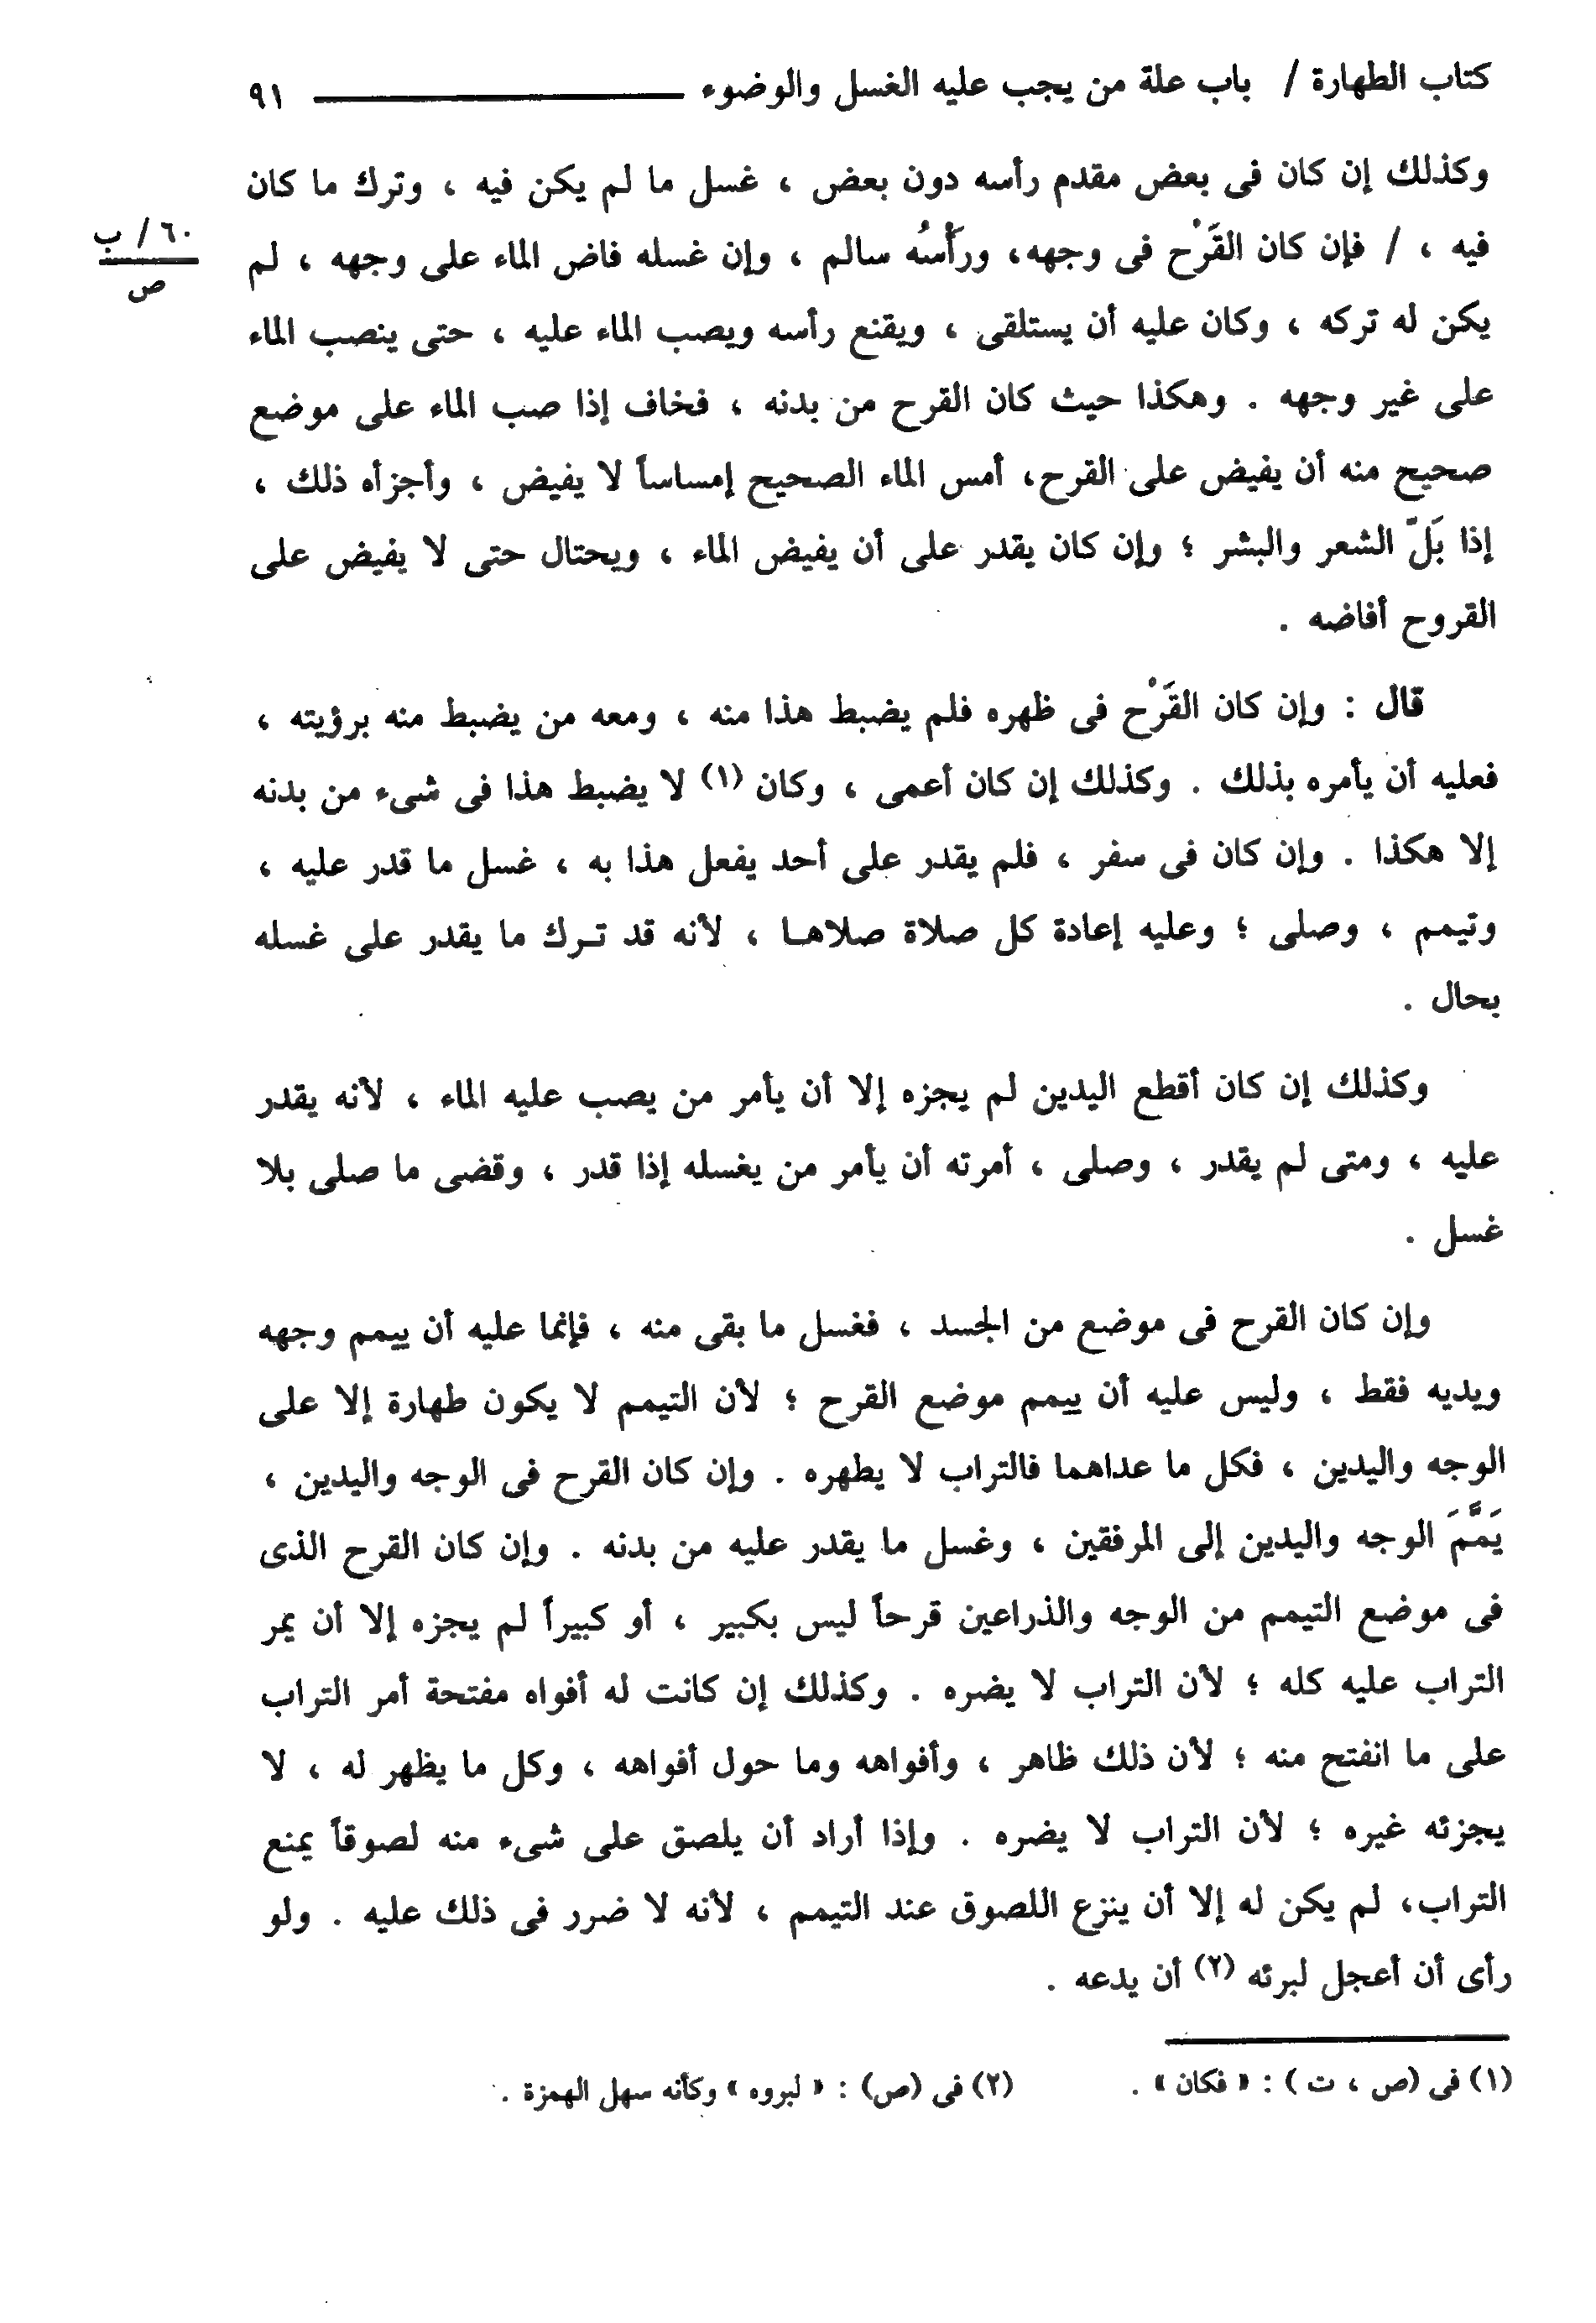 كتاب الطهارة / باب علة من يجب عليه الغسل والوضوء ــــــــــ ٩١
وكذلك إن كان فى بعض مقدم رأسه دون بعض ، غسل ما لم يكن فيه ، وترك ما كان
فيه ، / فإن كان القَرْح فى وجهه، ورَأْسُه سالم ، وإن غسله فاض الماء على وجهه ، لم
٦٠ / ب
ص
يكن له تركه ، وكان عليه أن يستلقى ، ويقنع رأسه ويصب الماء عليه ، حتى ينصب الماء
على غير وجهه . وهكذا حيث كان القرح من بدنه ، فخاف إذا صب الماء على موضع
صحيح منه أن يفيض على القرح، أمس الماء الصحيح إمساساً لا يفيض ، وأجزأه ذلك ،
إذا بَلّ الشعر والبشر ؛ وإن كان يقدر على أن يفيض الماء ، ويحتال حتى لا يفيض على
القروح أفاضه .
قال : وإن كان القَرْح فى ظهره فلم يضبط هذا منه ، ومعه من يضبط منه برؤيته ،
فعليه أن يأمره بذلك . وكذلك إن كان أعمى ، وكان (١) لا يضبط هذا فى شىء من بدنه
إلا هكذا . وإن كان فى سفر ، فلم يقدر على أحد يفعل هذا به ، غسل ما قدر عليه ،
وتيمم ، وصلى ؛ وعليه إعادة كل صلاة صلاهـا ، لأنه قد تـرك ما يقدر على غسله
بحال .
وكذلك إن كان أقطع اليدين لم يجزه إلا أن يأمر من يصب عليه الماء ، لأنه يقدر
عليه ، ومتى لم يقدر ، وصلى ، أمرته أن يأمر من يغسله إذا قدر ، وقضى ما صلى بلا
غسل .
وإن كان القرح فى موضع من الجسد ، فغسل ما بقى منه ، فإنما عليه أن ييمم وجهه
ويديه فقط ، وليس عليه أن ييمم موضع القرح ؛ لأن التيمم لا يكون طهارة إلا على
الوجه واليدين ، فكل ما عداهما فالتراب لا يطهره . وإن كان القرح فى الوجه واليدين ،
يَمَّمَ الوجه واليدين إلى المرفقين ، وغسل ما يقدر عليه من بدنه . وإن كان القرح الذى
فى موضع التيمم من الوجه والذراعين قرحاً ليس بكبير ، أو كبيراً لم يجزه إلا أن يمر
التراب عليه كله ؛ لأن التراب لا يضره . وكذلك إن كانت له أفواه مفتحة أمر التراب
على ما انفتح منه ؛ لأن ذلك ظاهر ، وأفواهه وما حول أفواهه ، وكل ما يظهر له ، لا
يجزئه غيره ؛ لأن التراب لا يضره . وإذا أراد أن يلصق على شىء منه لصوقاً يمنع
التراب، لم يكن له إلا أن ينزع اللصوق عند التيمم ، لأنه لا ضرر فى ذلك عليه . ولو
رأى أن أعجل لبرئه (٢) أن يدعه .
(١) فى (ص ، ت ) : « فكان » . (٢) فى (ص) : « لبروه » وكأنه سهل الهمزة .